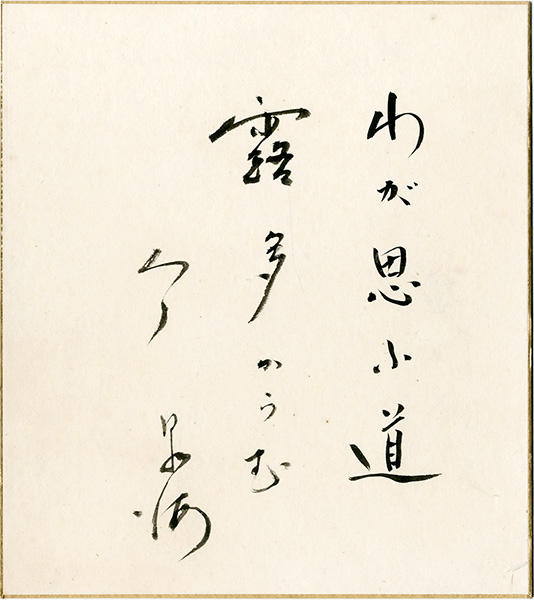 わが思ふ道
露多からむ
今